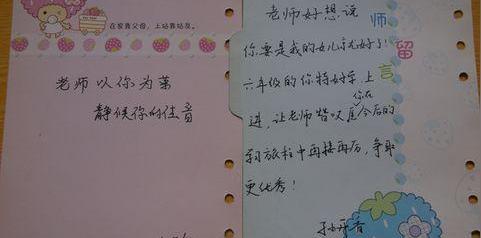 在家靠父母，上站靠站友。
老师以你为荣
静候你的佳音
老师好想说
你要是我的女儿就好了！
六年级的你特好学上
进，让老师赞叹愿你在今后的
学习旅程中再接再厉，争取
更优秀！
师
留
言